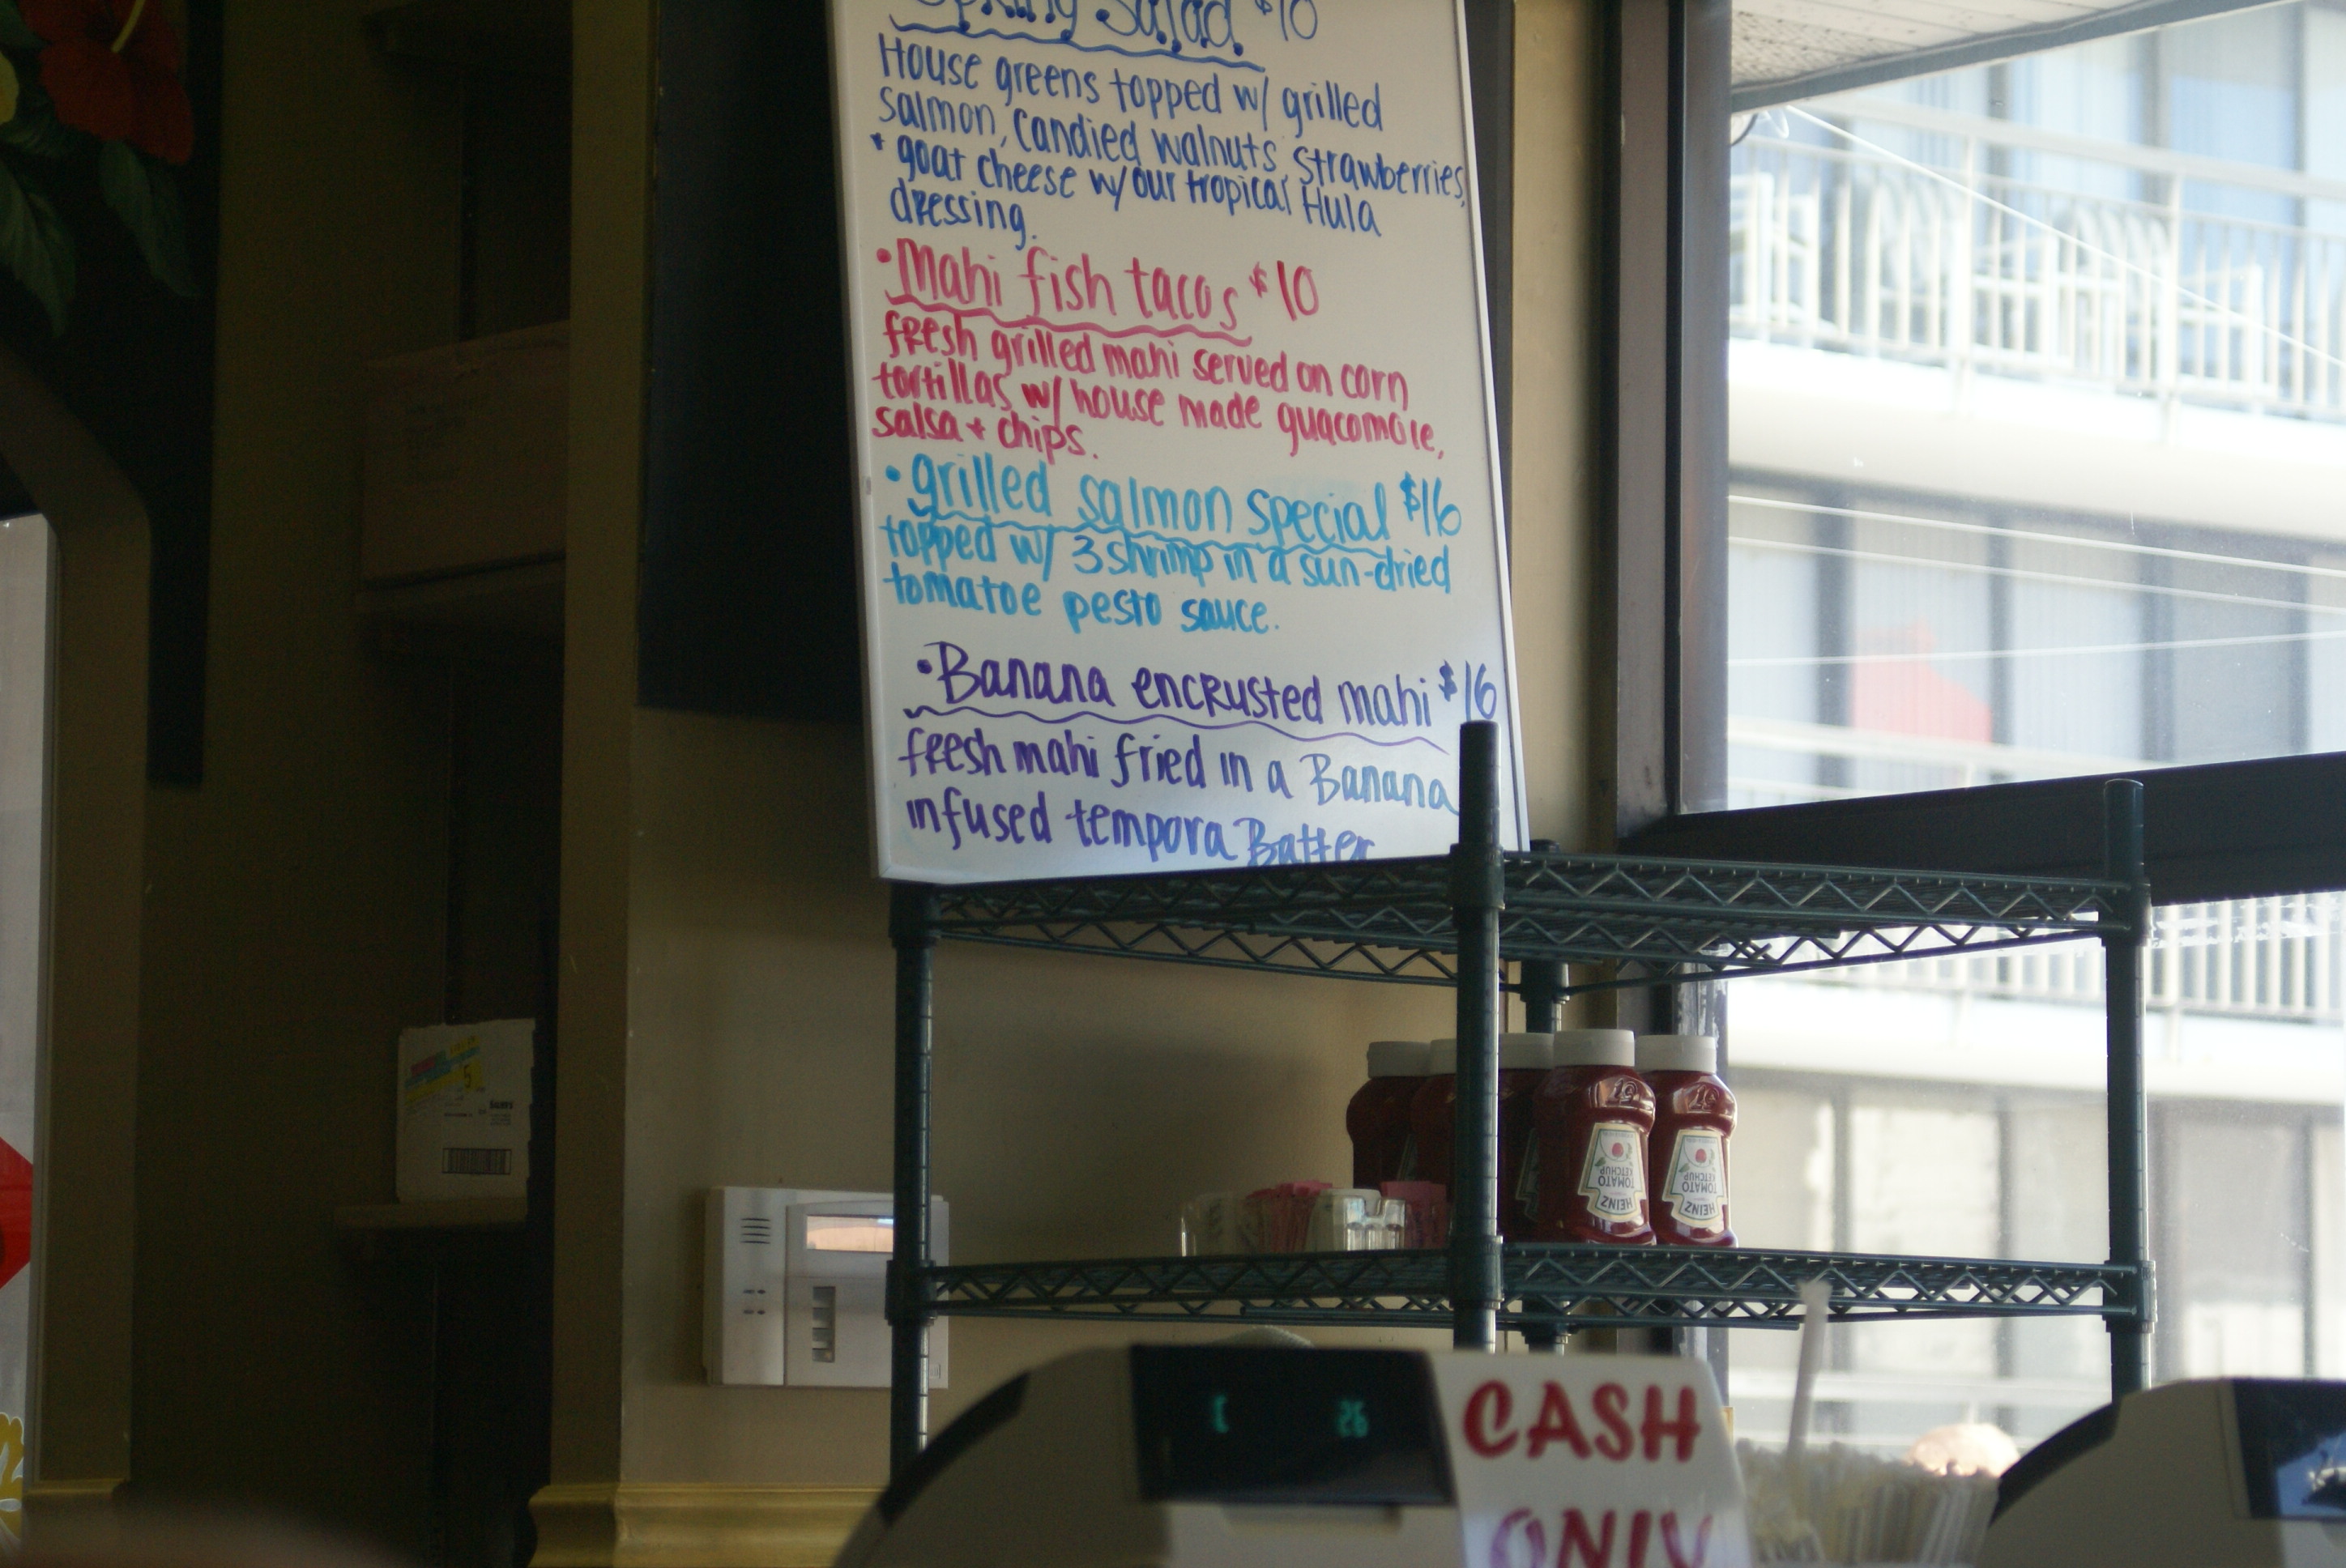 Spring Salad $10
House greens topped w/ grilled
salmon, candied walnuts, strawberries,
+ goat cheese w/ our tropical Hula
dressing.
• Mahi fish tacos $10
fresh grilled mahi served on corn
tortillas w/ house made guacomole,
salsa + chips.
• grilled salmon special $16
topped w/ 3 shrimp in a sun-dried
tomatoe pesto sauce.
• Banana encrusted mahi $16
fresh mahi fried in a Banana
infused tempora Batter
5
HEINZ
TOMATO
KETCHUP
HEINZ
TOMATO
KETCHUP
26
CASH
ONLY